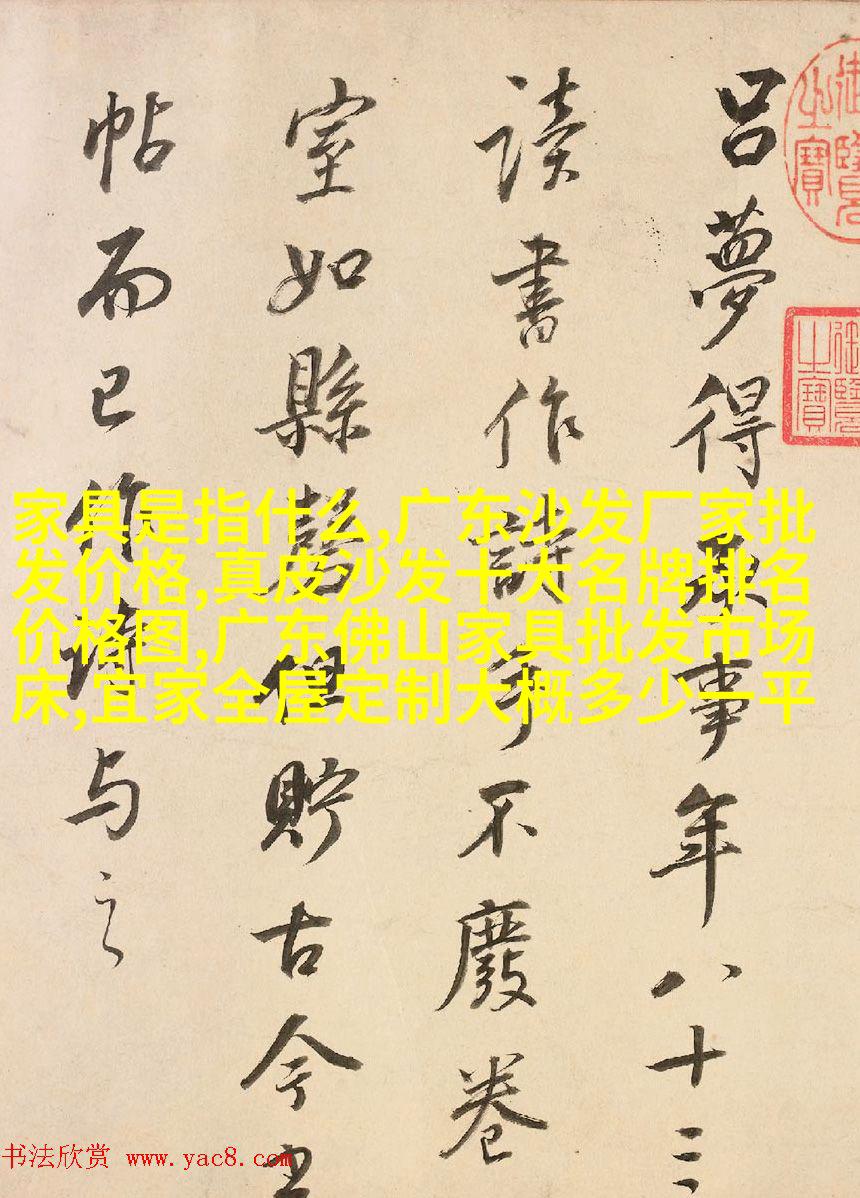 御覽之寶
御覽之寶
呂夢得承事年八十三
读書作詩手不廢卷
室如縣磬但貯古今
帖而已作詩与之
家具是指什么,广东沙发厂家批
发价格,真皮沙发十大名牌排名
价格图,广东佛山家具批发市场
床,宜家全屋定制大概多少一平
书法欣赏 www.yac8.com